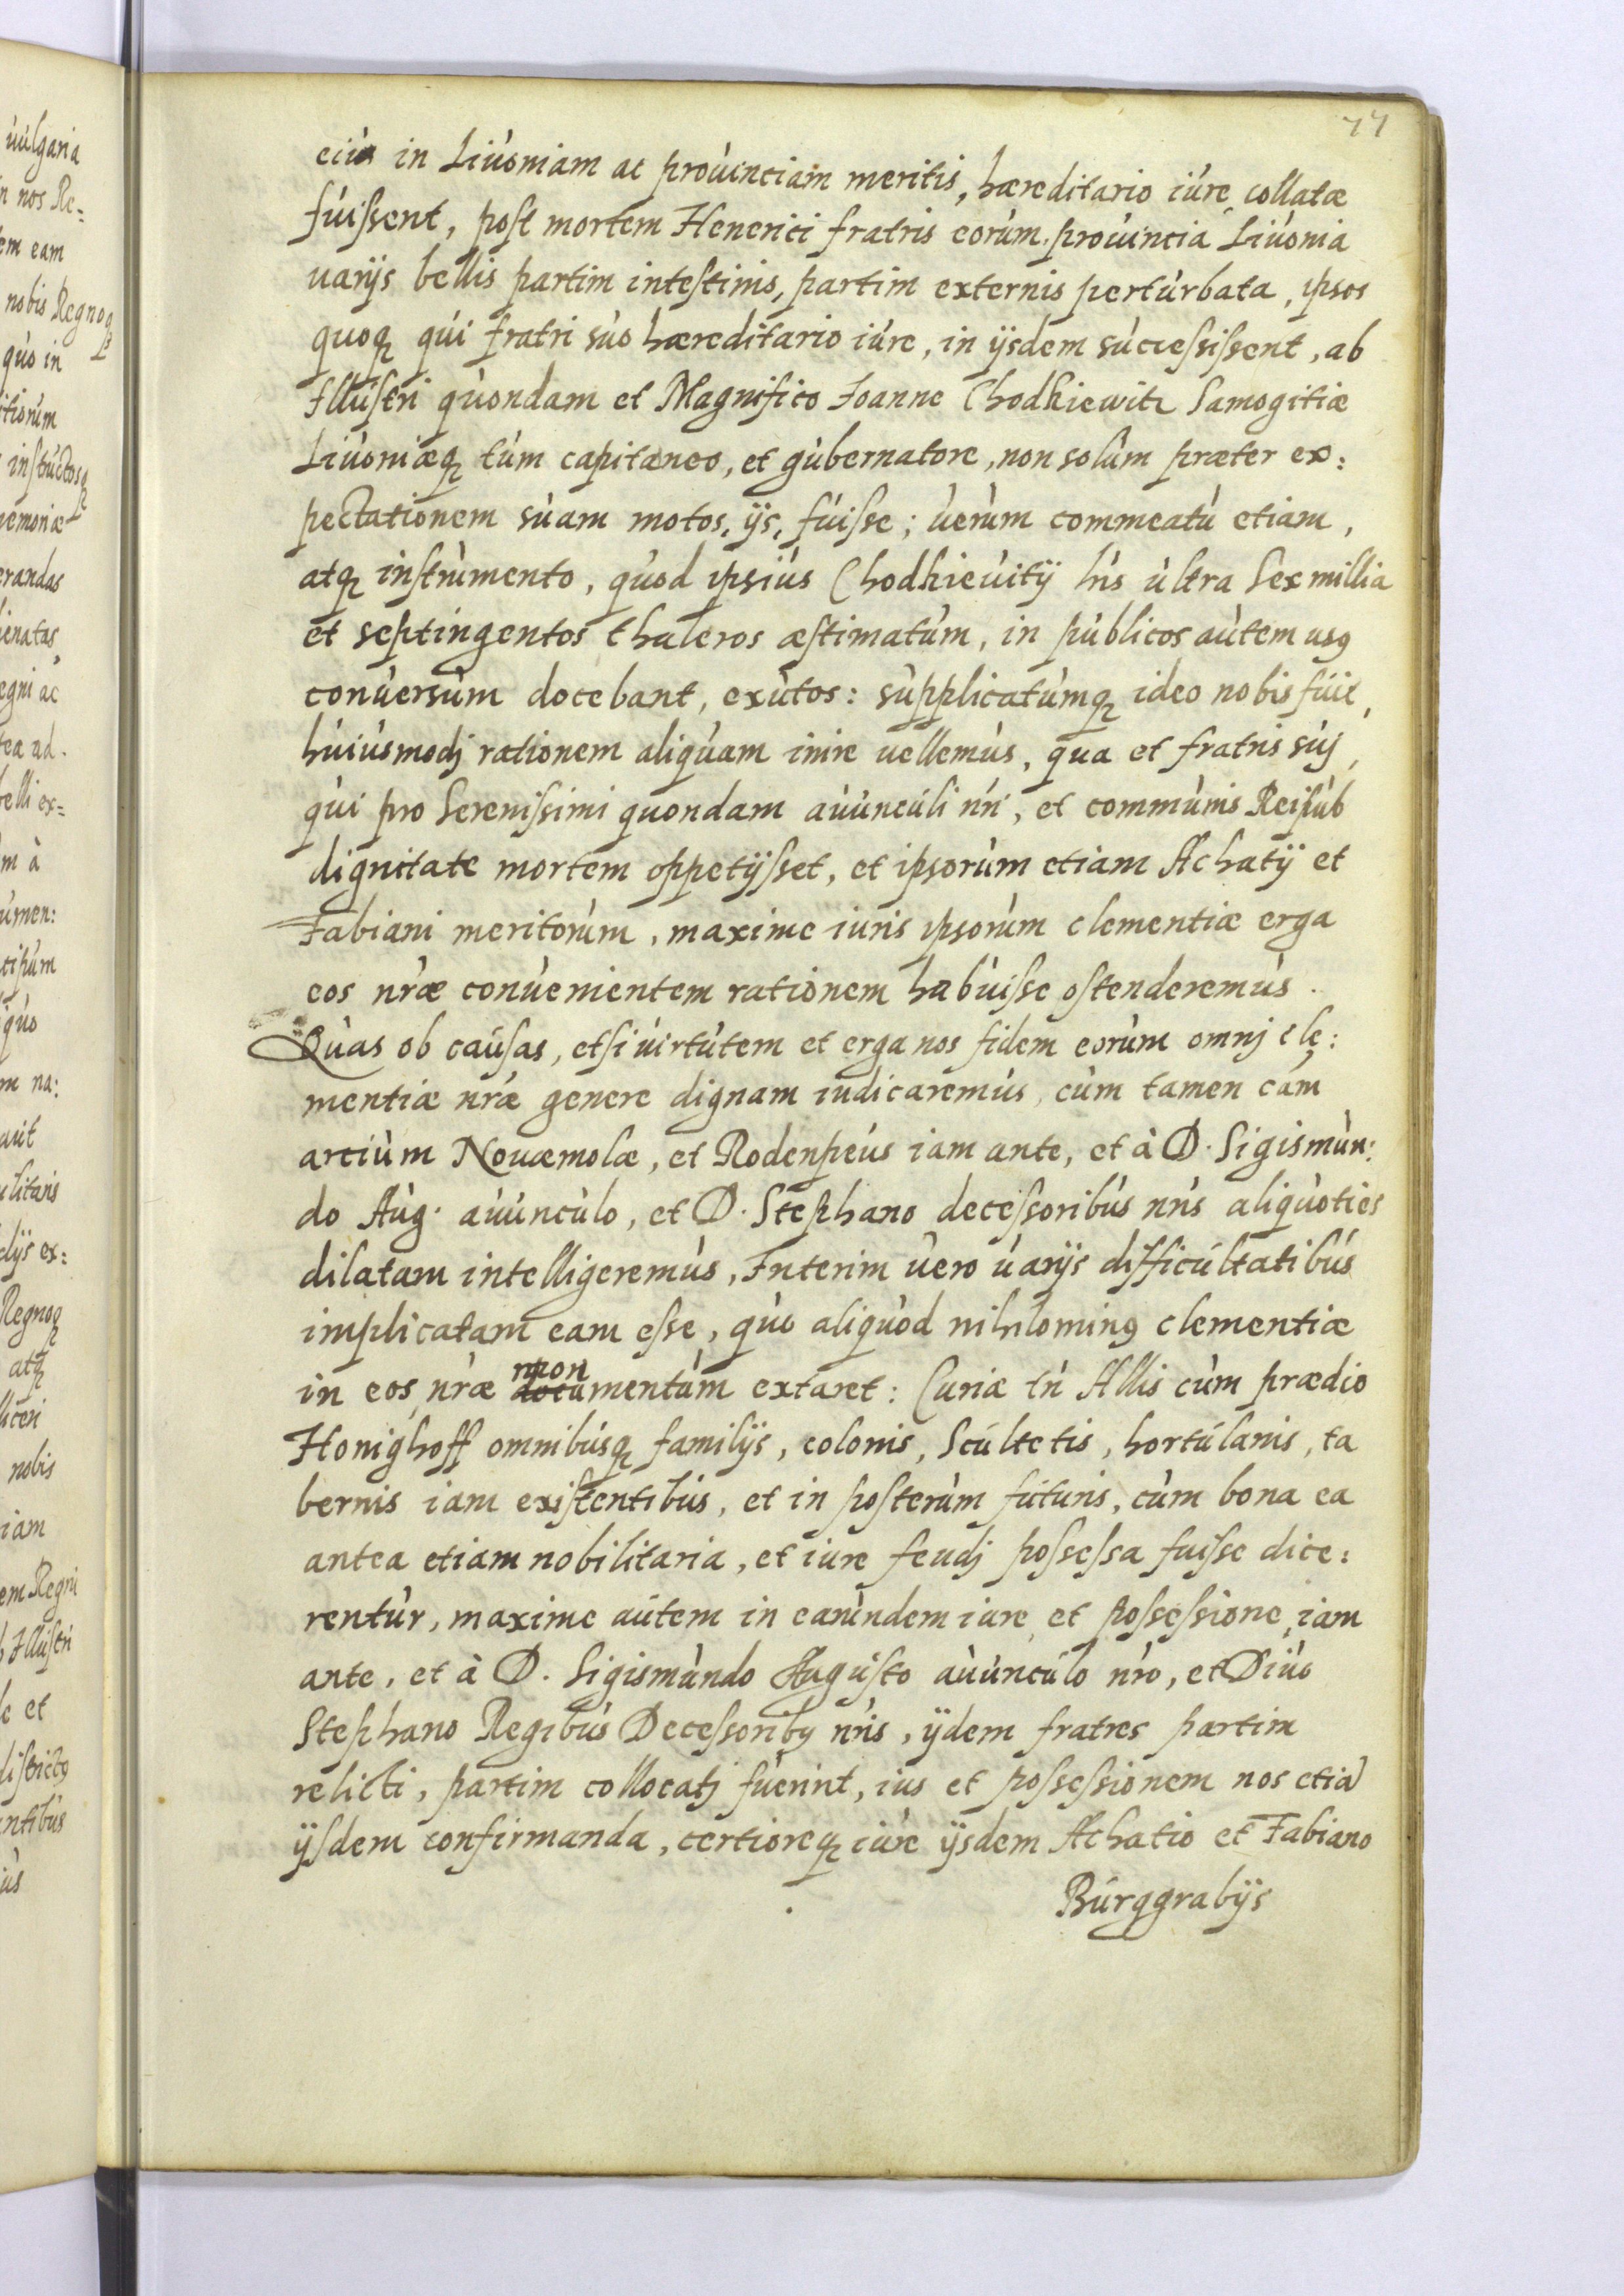 77
eius in Liuoniam ac prouinciam meritis, hæreditario iure collatæ
fuissent, post mortem Henerici fratris eorum. prouincia Liuonia
uarijs bellis partim intestinis, partim externis perturbata, ipsos
quoq; qui fratri suo hæreditario iure, in ijsdem successissent, ab
Illustri quondam et Magnifico Joanne Chodkiewitz Samogitiæ
Liuoniæq; tum capitaneo, et gubernatore, non solum præter ex:
pectationem suam motos, ijs, fuisse; uerum commeatu etiam,
atq; instrumento, quod ipsius Chodkieuitij lris ultra Sex millia
et septingentos thaleros æstimatum, in publicos autem usq
conuersum docebant, exutos: supplicatumq; ideo nobis fuit,
huiusmodj rationem aliquam inire uellemus, qua et fratris suj,
qui pro Serenissimi quondam auunculi nri, et communis Reipub
dignitate mortem oppetijsset, et ipsorum etiam Achatij et
Fabiani meritorum, maxime iuris ipsorum clementiæ erga
eos nræ conuenientem rationem habuisse ostenderemus.
Quas ob causas, etsi uirtutem et erga nos fidem eorum omnj cle:
mentiæ nræ genere dignam iudicaremus, cum tamen cam
arcium Nouæmolæ, et Rodenpeus iam ante, et à D. Sigismun:
do Aug. auunculo, et D. Stephano decessoribus nris aliquoties
dilatam intelligeremus, Interim uero uarijs difficultatibus
implicatam eam esse, quo aliquod nihilominq clementiæ
in eos nræ mon documentum extaret: Curiæ tn Allis cum prædio
Honighoff omnibusq; familijs, colonis, Scultetis, hortulanis, ta
bernis iam existentibus, et in posterum futuris, cum bona ea
antea etiam nobilitaria, et iure feudj possessa fuisse dice:
rentur, maxime autem in earundem iure et possessione iam
ante, et à D. Sigismundo Augusto auunculo nro, et Diuo
Stephano Regibus Decessoribq nris, ijdem fratres partim
relicti, partim collocatj fuerint, ius et possessionem nos etiã
ijsdem confirmanda, certioreq; iure ijsdem Achatio et Fabiano
Burggrabijs